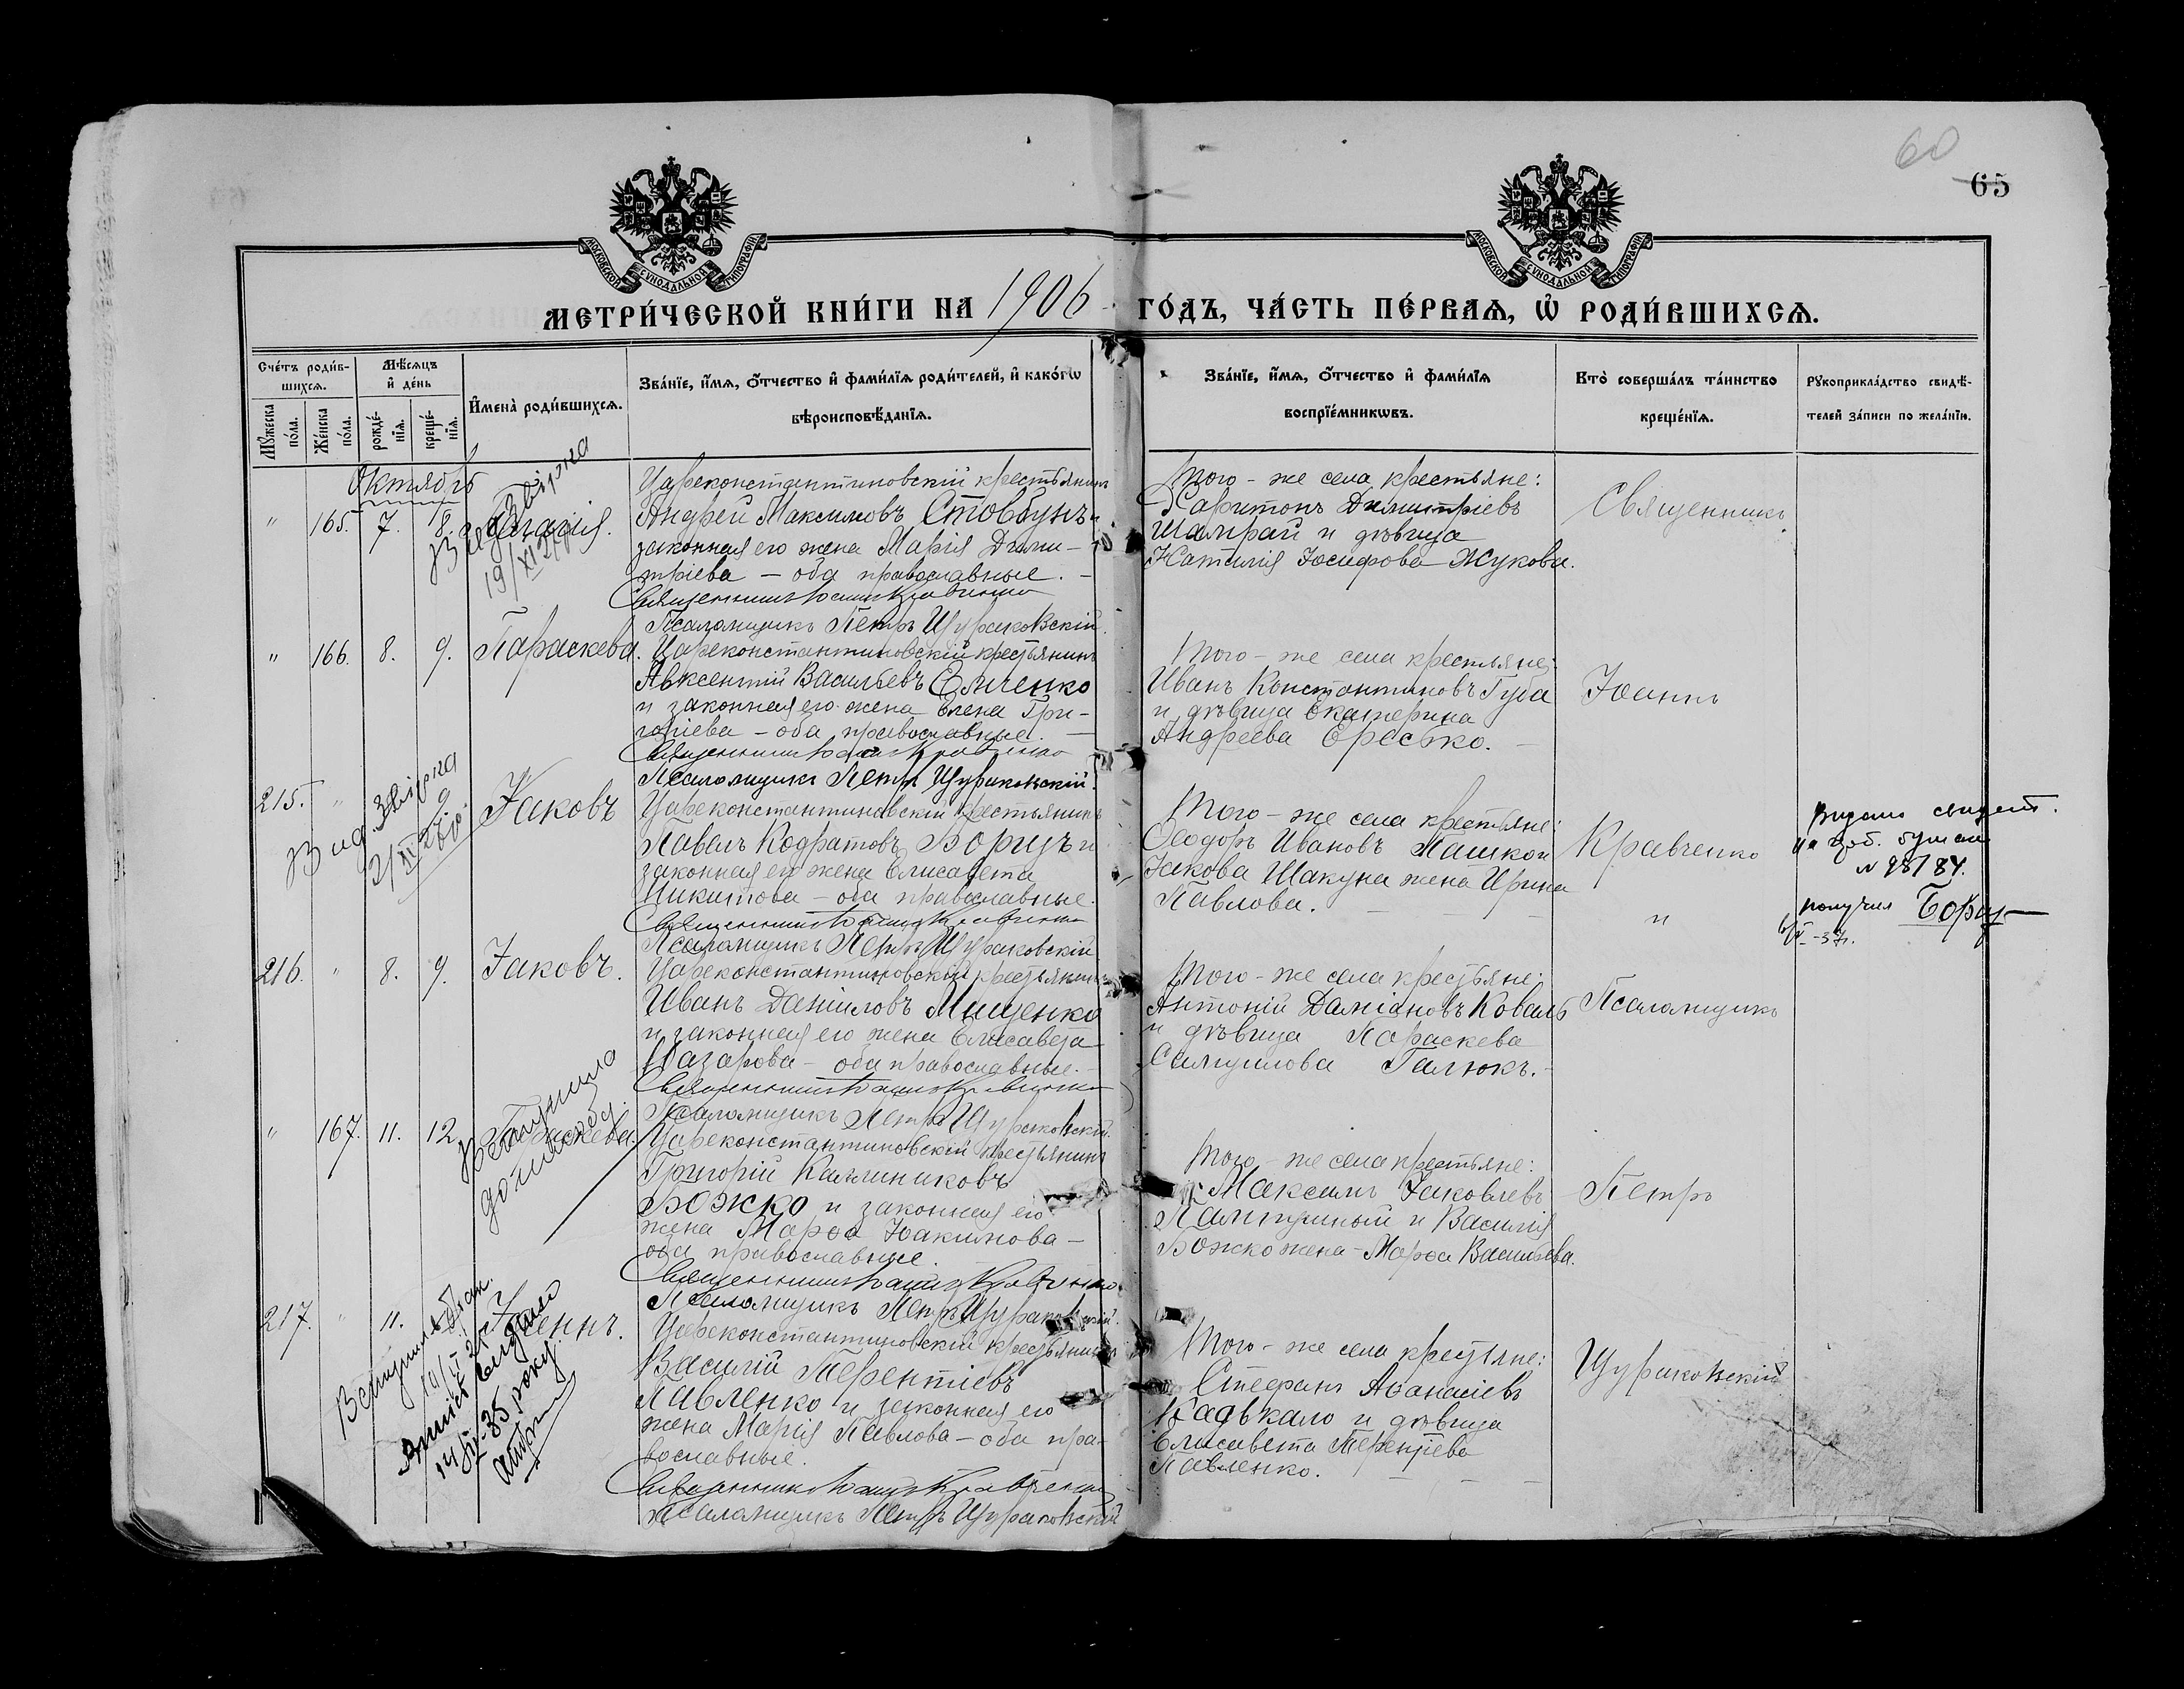 60
65
МОСКОВСКОЙ СѴНОДАЛЬНОЙ ТИПОГРАФІИ
МОСКОВСКОЙ СѴНОДАЛЬНОЙ ТИПОГРАФІИ
МЕТРИ́ЧЕСКОЙ КНИ́ГИ НА 1906 ГО́ДЪ, ЧА́СТЬ ПЕ́РВАѦ, Ѡ҆ РОДИ́ВШИХСѦ.
Сче́тъ роди́в-
шихсѧ.
Мꙋ́жеска по́ла.
Же́нска по́ла.
Мѣ́сѧцъ и҆ де́нь
рожде́-нїѧ.
креще́-нїѧ.
И҆мена̀ роди́вшихсѧ.
Зва́нїе, и҆́мѧ, ѻ҆́тчество и҆ фами́лїѧ роди́телей, и҆ како́гѡ
вѣроисповѣ́данїѧ.
Зва́нїе, и҆́мѧ, ѻ҆́тчество и҆ фами́лїѧ
воспрїе́мникѡвъ.
Кто̀ соверша́лъ та́инство
креще́нїѧ.
Рꙋкоприкла́дство свидѣ́-
телей за́писи по жела́нїю.
Октябрь
" 165. 7. 8.
Цареконстантиновскій крестьянинъ
Андрей Максимовъ Стовбунъ и
законная его жена Марія Дими-
тріева — оба православные. —
Священникъ Іоаннъ Кравченко
Псаломщикъ Петръ Щураковскій.
Того - же села крестьяне:
Харитонъ Димитріевъ
Шамрай и дѣвица
Наталія Іосифова Жукова.
Священникъ
" 166. 8. 9. Параскева.
Цареконстантиновскій крестьянинъ
Авксентій Васильевъ Еліченко
и законная его жена Елена Гри-
горіева — оба православные. —
Священникъ Іоаннъ Кравченко
Псаломщикъ Петръ Щураковскій.
Того - же села крестьяне:
Иванъ Константиновъ Губа
и дѣвица Екатерина
Андреева Ересько. —
Іоаннъ
215. " 9. Іаковъ
Цареконстантиновскій крестьянинъ
Павелъ Кодратовъ Борицъ и
законная его жена Елисавета
Никитова — оба православные.
Священникъ Іоаннъ Кравченко
Псаломщикъ Петръ Щураковскій
Того - же села крестьяне:
Ѳеодоръ Ивановъ Пашко и
Іакова Шакуна жена Ирина
Павлова. — —
Кравченко
и
получил
216. " 8. 9. Іаковъ.
Цареконстантиновскій крестьянинъ
Иванъ Даніиловъ Мищенко
и законная его жена Елисавета
Назарова — оба православные. —
Священникъ Іоаннъ Кравченко
Псаломщикъ Петръ Щураковскій.
Того - же села крестьяне:
Антоній Даміановъ Коваль
и дѣвица Параскева
Самуилова Галюкъ. —
Псаломщикъ
" 167. 11. 12. Параскева.
Цареконстантиновскій крестьянинъ
Григорій Каллиниковъ
Божко и законная его
жена Марѳа Іоакимова —
оба православные.
Священникъ Іоаннъ Кравченко
Псаломщикъ Петръ Щураковскій.
Того - же села крестьяне:
Максимъ Іаковлевъ
и Василія
Божко жена — Марѳа Васильева.
Петръ
217. " 11.
Цареконстантиновскій крестьянинъ
Василій Терентіевъ
Павленко и законная его
жена Марія Павлова — оба пра-
вославные.
Священникъ Іоаннъ Кравченко
Псаломщикъ Петръ Щураковскій
Того - же села крестьяне:
Стефанъ Аѳанасіевъ
Кадькало и дѣвица
Елисавета Терентіева
Павленко. — — —
Щураковскій